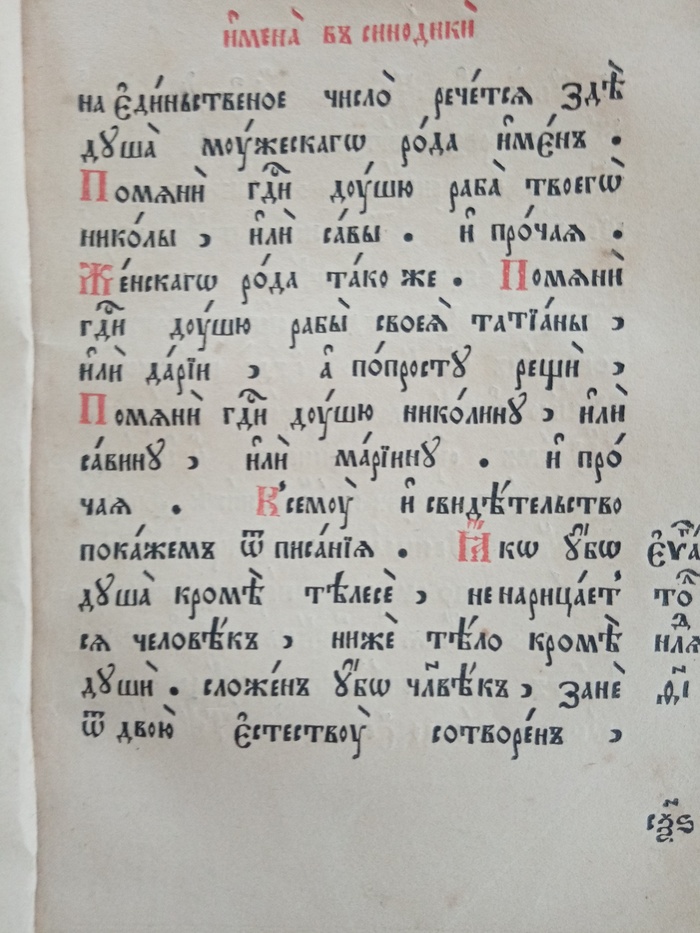 и҆мена̀ въ синодики̑
на є҆ди́ньственое число̀ рече́тсѧ здѣ̀
дꙋша̀ моу́жескагѡ ро́да и҆ме́нъ .
Помѧнѝ гдⷭ҇и доу́шю раба̀ твоегѡ̀
нико́лы , и҆лѝ са́вы . и҆ про́чаѧ .
Же́нскагѡ ро́да та́ко же . Помѧнѝ
гдⷭ҇и доу́шю рабы̀ своеѧ̀ татїа́ны ,
и҆лѝ да́рїи , а҆ по́простꙋ рещѝ ,
Помѧнѝ гдⷭ҇и доу́шю нико́линꙋ , и҆лѝ
са́винꙋ , и҆лѝ ма́рїинꙋ . и҆ про́
чаѧ . К̾семоу̀ и҆ свидѣ́тельство
пока́жемъ ѿ писа́нїѧ . Ꙗ҆́кѡ ᲂу҆́бѡ
дꙋша̀ кромѣ̀ тѣлесѐ , не нарица́ет̾
сѧ человѣ́къ , нижѐ тѣ́ло кромѣ̀
дꙋшѝ . сложе́нъ ᲂу҆́бѡ чл҃вѣ́къ , занѐ
ѿ двою̀ є҆стествоу̀ сотворе́нъ ,